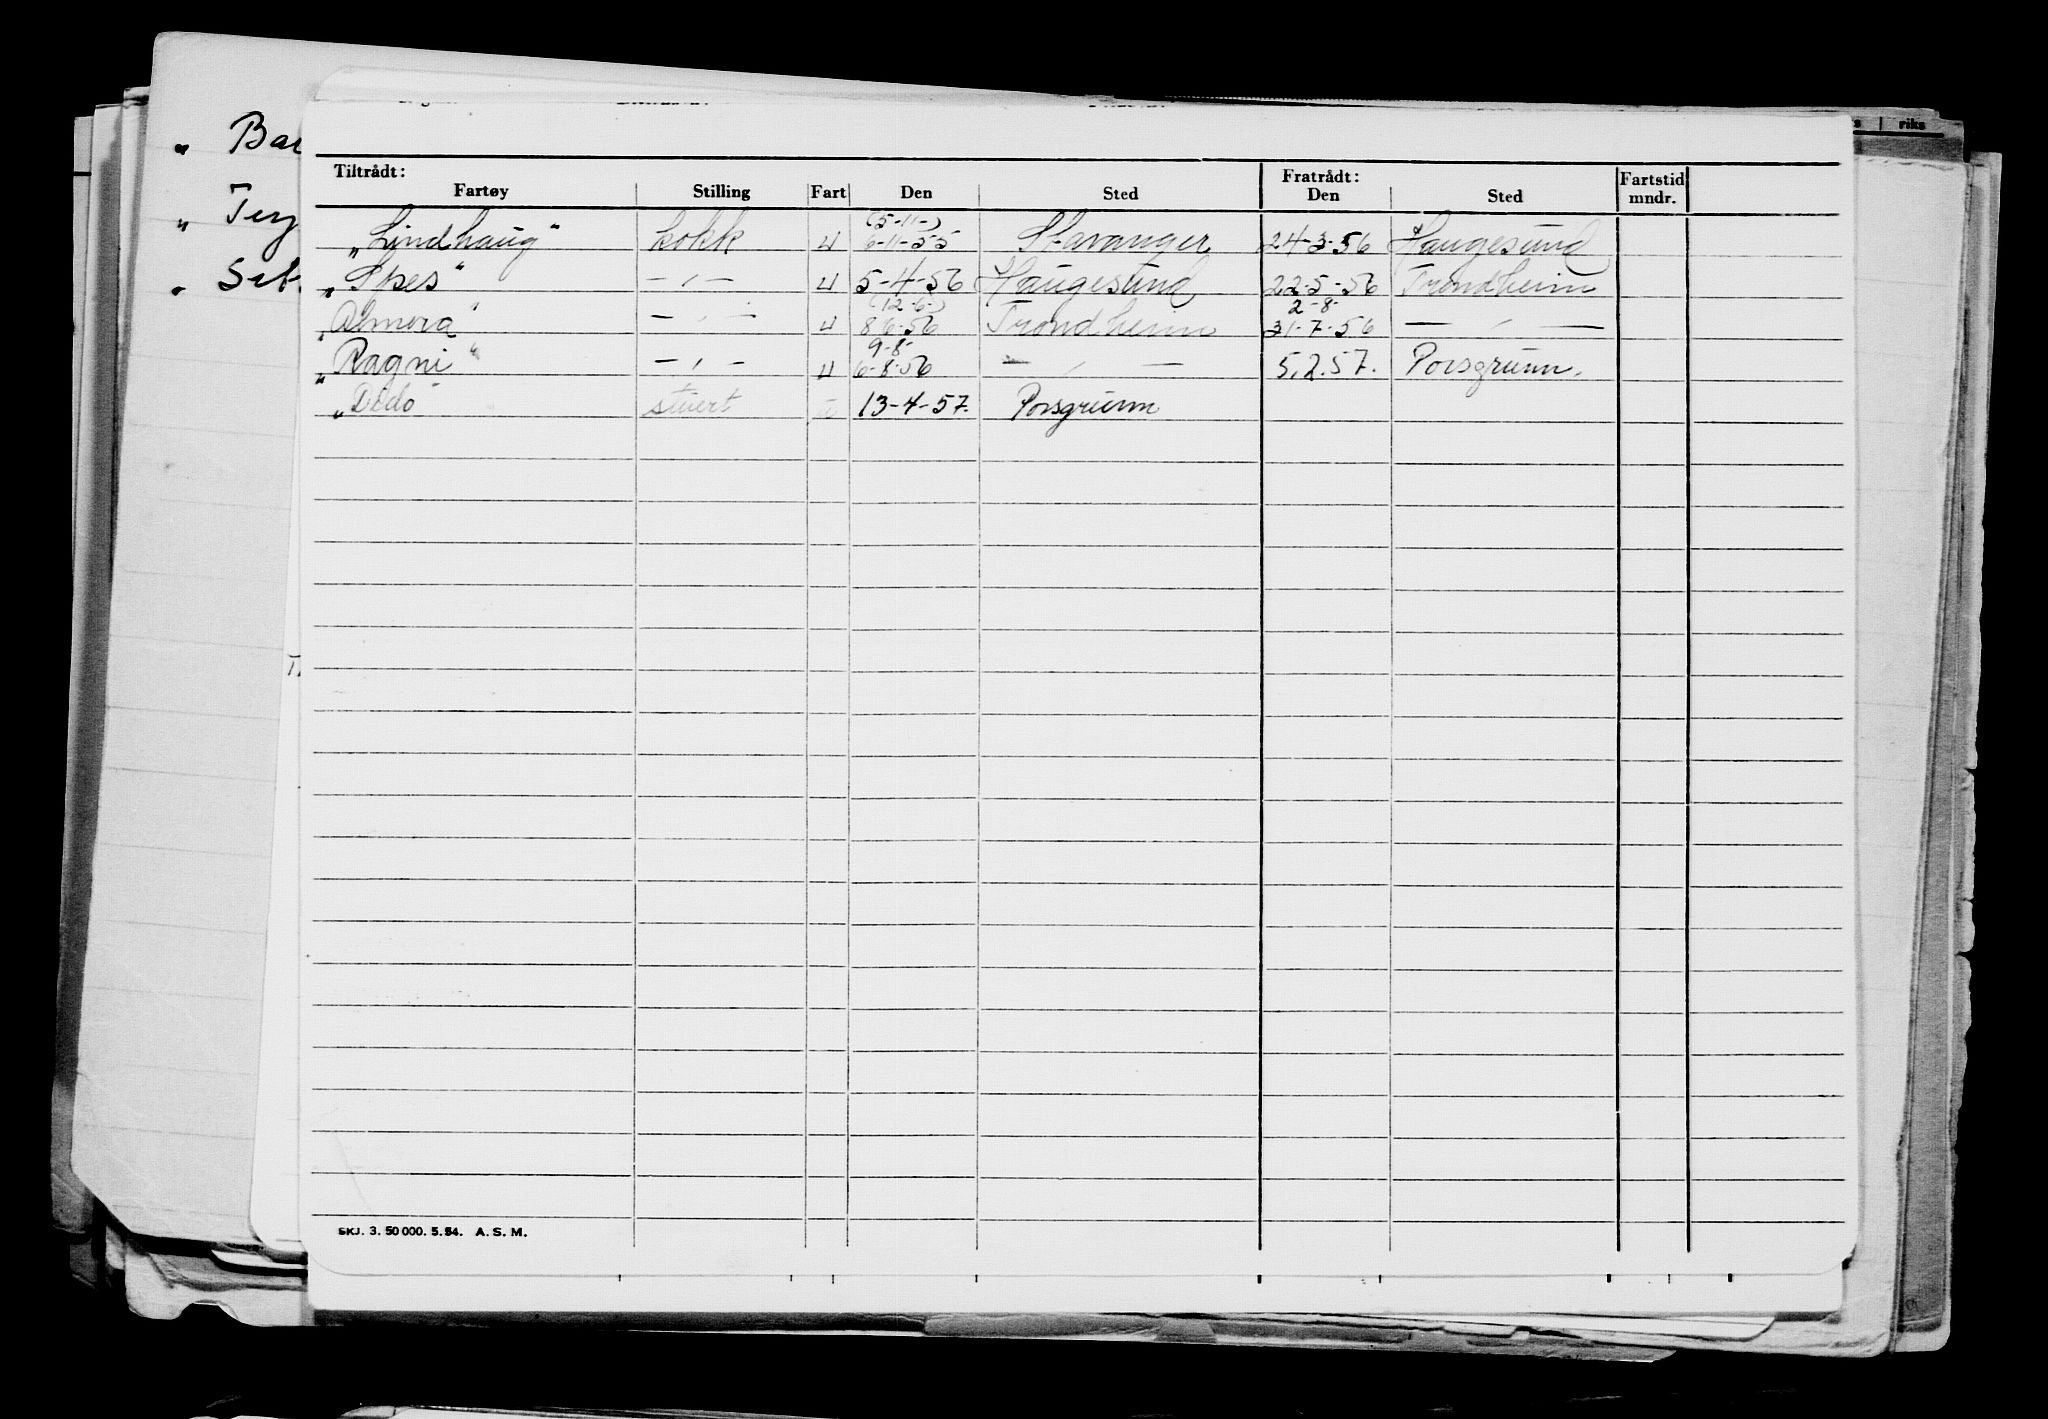 „ Ba
„ Te
„ Se
riks
Tiltrådt: Fratrådt:
Fartøy Stilling Fart Den Sted Den Sted Fartstid mndr.
(5-11-)
„Lindhaug" kokk U 6-11-55 Stavanger 24-3-56 Haugesund
„Spes" — „ — U 5-4-56 Haugesund 22-5-56 Trondheim
(12-6-) 2-8-
„Almora" — „ — U 8-6-56 Trondheim 31-7-56 — „ —
9-8-
„Ragni" — „ — U 6-8-56 — „ — 5.2.57. Porsgrunn.
„Dido" stuert 13-4-57. Porsgrunn
SKJ. 3. 50 000. 5.54. A. S. M.